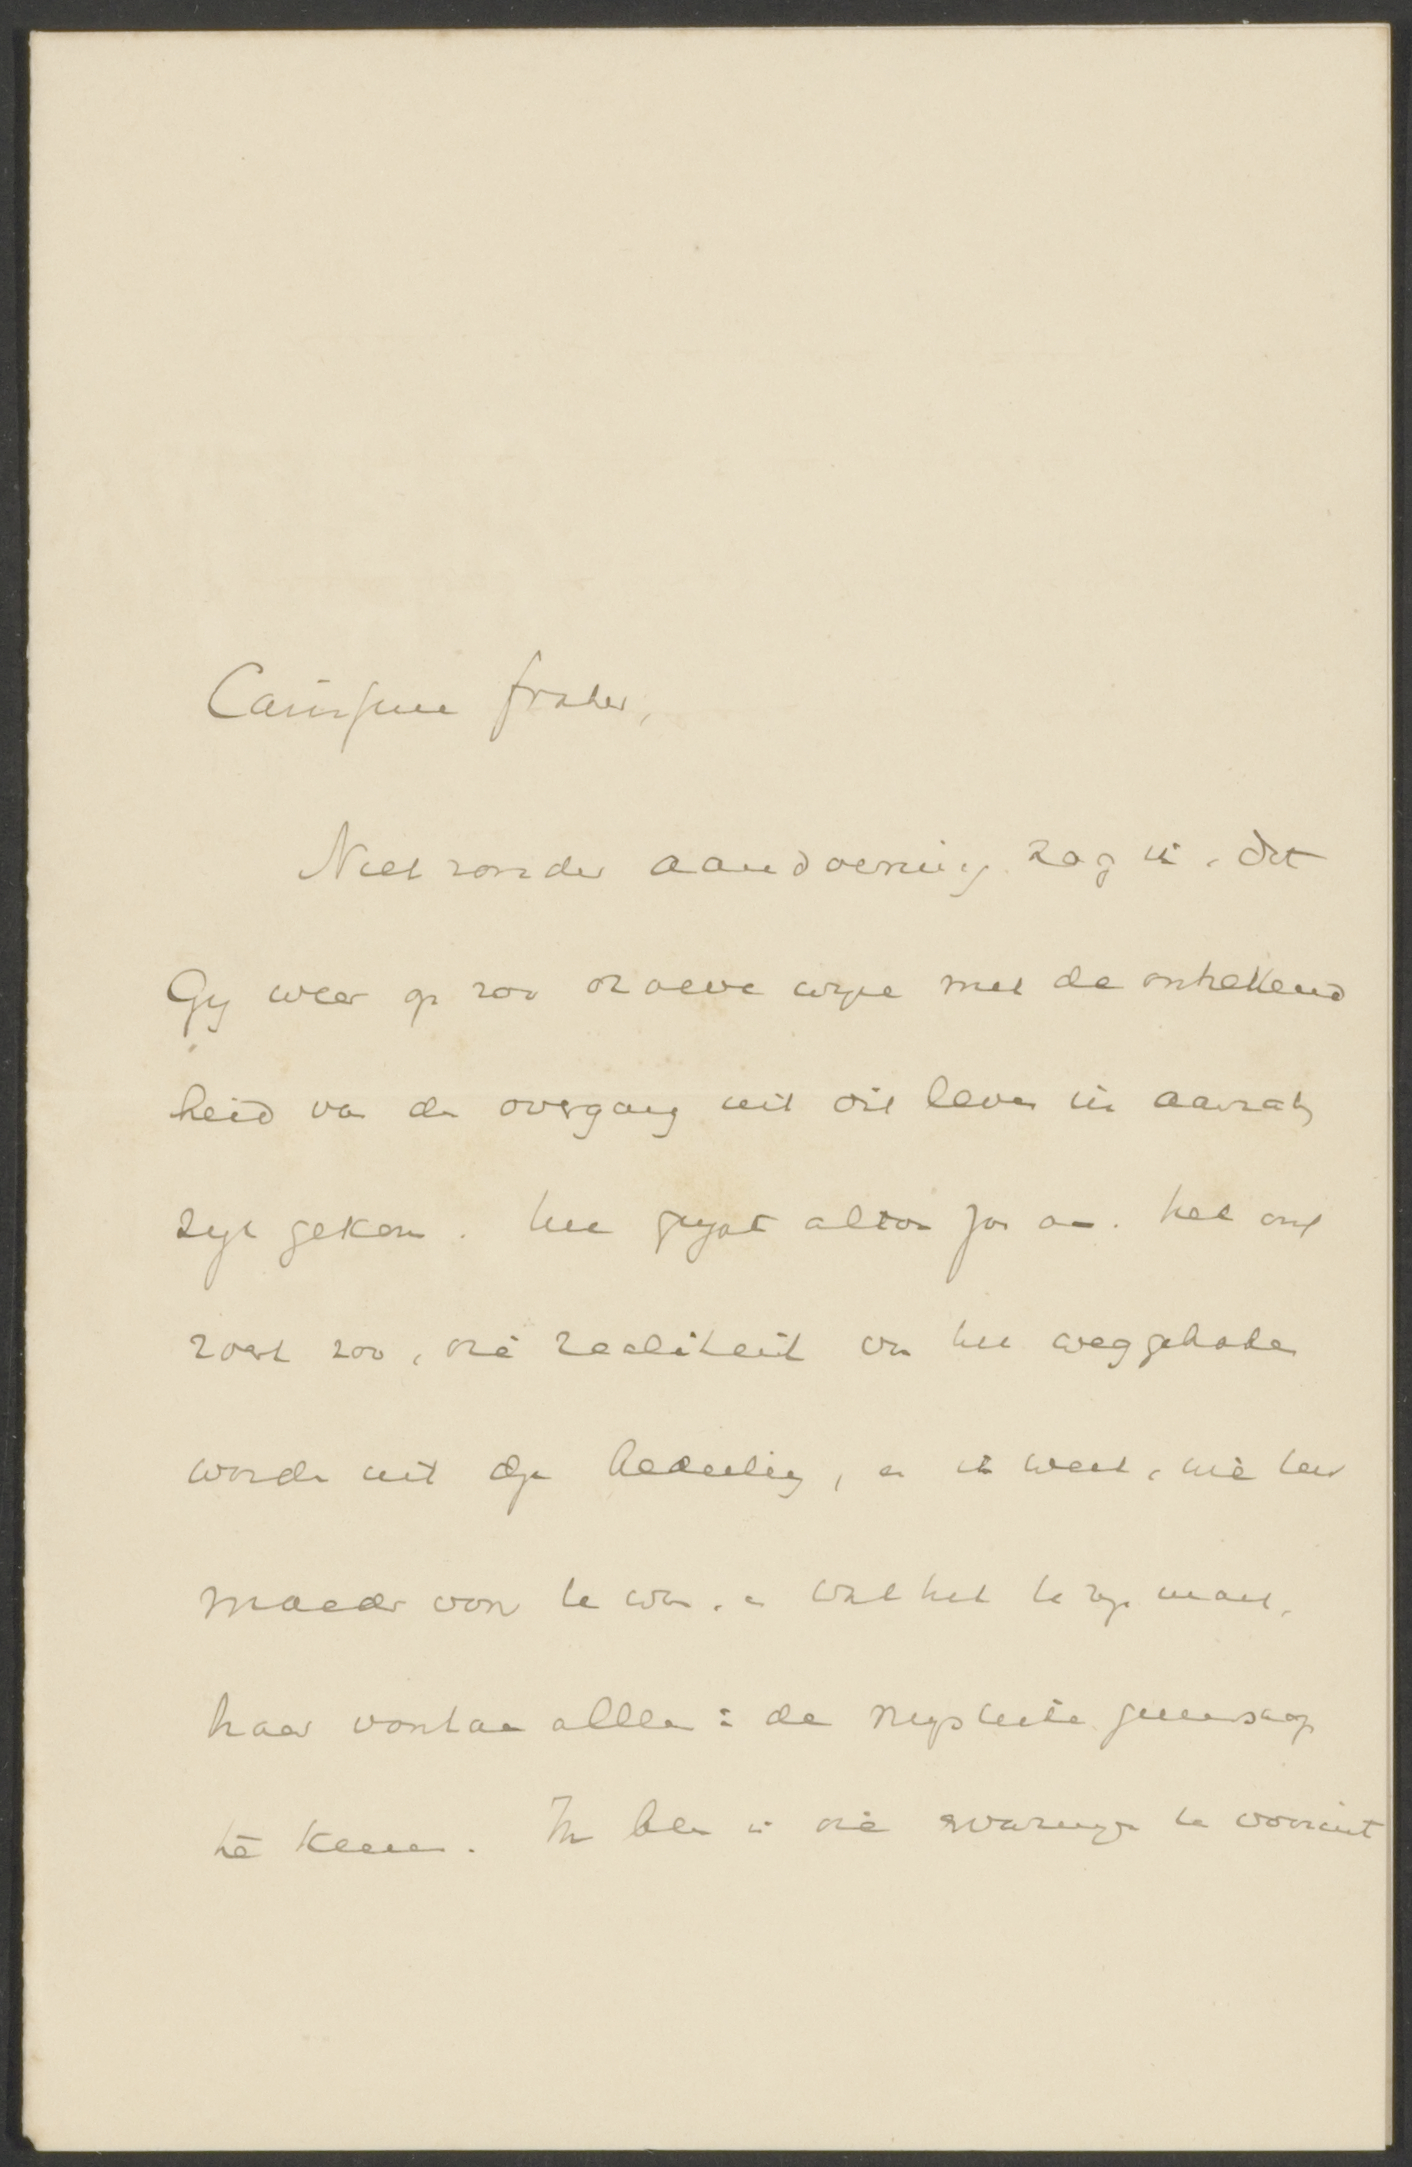 Carissime frater,
Niet zonder aandoening zag ik, dat
Gy weer op zoo droeve wyze met de ontzettend
heid van den overgang uit dit leven in aanraking
zyt gekomen. Het grypt altoos zoo aan. het
zoo, die realiteit van het weggehaald
worden uit deze bedeeling, en ik weet, wie Uw
moeder voor U was. en wat het U zyn moet,
haar voortaan alleen in de mystieke gemeenschap
te kennen. Ik ben U die ervaringen vooruit